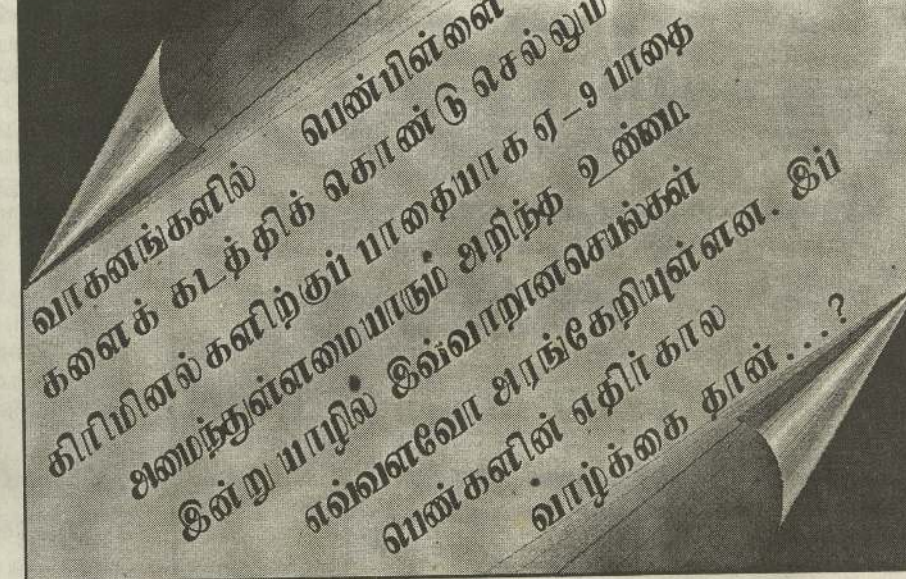 வாகனங்களில் பெண்பிள்ளை
களைக் கடத்திக் கொண்டு செல்லும்
கிரிமினல்களிற்குப் பாதையாக ஏ-9 பாதை
அமைந்துள்ளமையாரும் அறிந்த உண்மை.
இன்று யாழில் இவ்வாறானசெயல்கள்
எவ்வளவோ அரங்கேறியுள்ளன. இப்
பெண்களின் எதிர்கால
வாழ்க்கை தான்...?